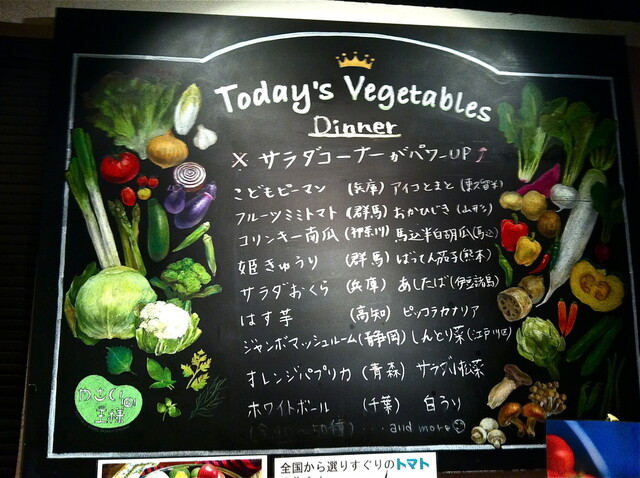 Today's Vegetables
Dinner
× サラダコーナーがパワーUP↑
こどもピーマン (兵庫) アイコとまと (東久留米)
フルーツミミトマト (群馬) おかひじき (山形)
コリンキー南瓜 (神奈川) 馬込半白胡瓜 (馬込)
姫きゅうり (群馬) ばってん茄子 (熊本)
サラダおくら (兵庫) あしたば (伊豆諸島)
はす芋 (高知) ピッコラカナリア
ジャンボマッシュルーム (静岡) しんとり菜 (江戸川区)
オレンジパプリカ (青森) サラダ小松菜
ホワイトボール (千葉) 白うり
・・・and more
やさい
王様
全国から選りすぐりのトマト